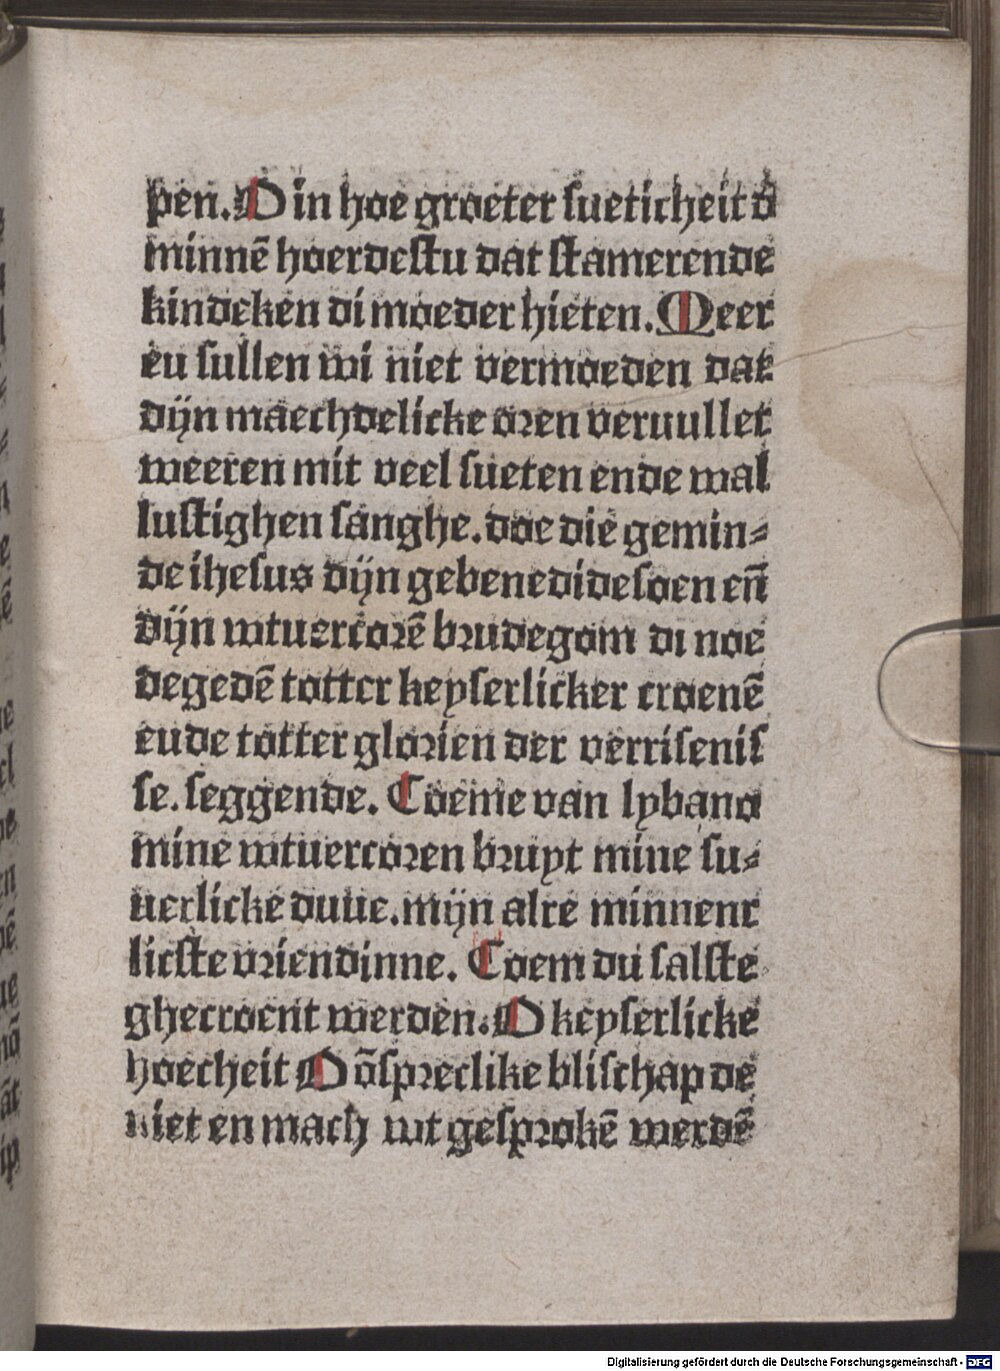 pen. O in hoe groeter sueticheit d̕
minnē hoerdestu dat stamerende
kindeken di moeder hieten. Meer
eu sullen wi niet vermoeden dat
dijn maechdelicke oren veruullet
weeren mit veel sueten ende wal
lustighen sanghe. doe die gemin⸗
de ihesus dijn gebenedide soen eñ
dijn wtuercorē brudegom di noe
degedē totter keyserlicker croenē
eude totter glorien der verrisenis
se. seggende. Coeme van lybano
mine wtuercoren bruyt mine su⸗
uerlicke duue. mijn alre minnent
licste vriendinne. Coem du salste
ghecroent werden. O keyserlicke
hoecheit O ōspreclike blischap de
niet en mach wt gesprokē werdē
Digitalisierung gefördert durch die Deutsche Forschungsgemeinschaft - DFG